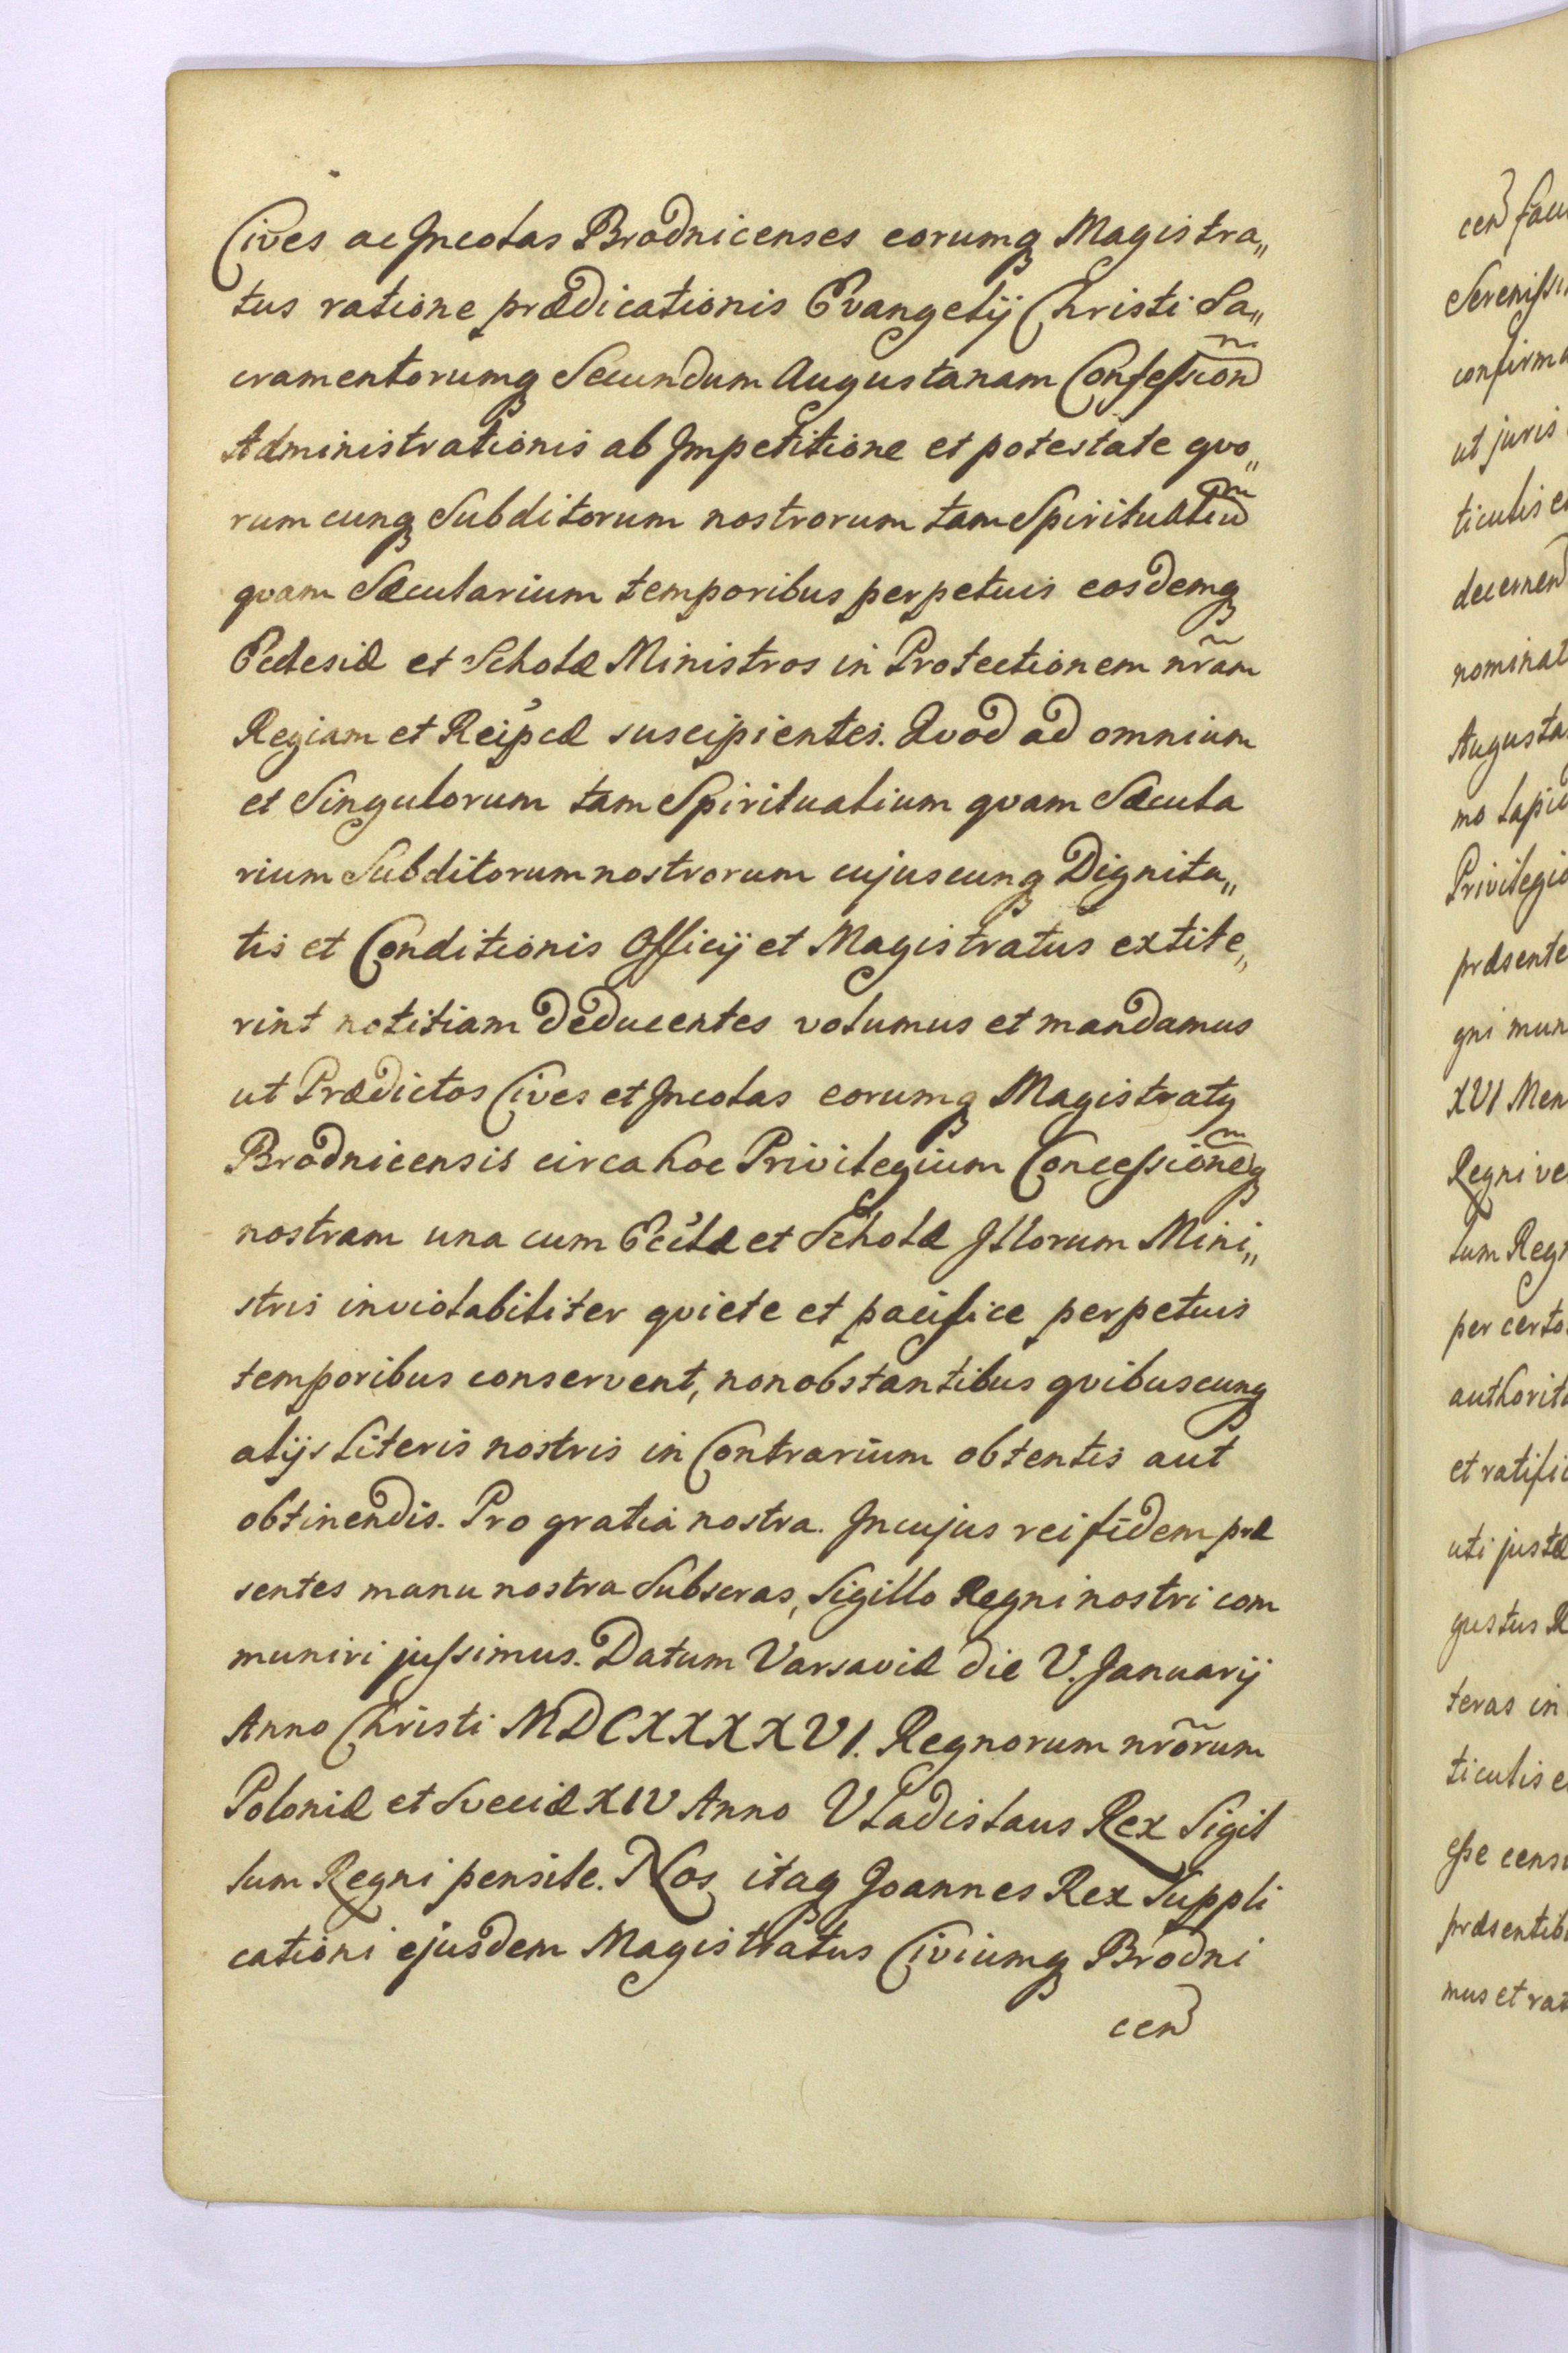 Cives ac Incolas Brodnicenses eorumq Magistra„
tus ratione prædicationis Evangelij Christi Sa„
cramentorumq Secundum Augustanam Confeſsion̄
Administrationis ab Impetitione et potestate qvo„
rumcunq Subditorum nostrorum tam Spiritualiū
qvam Sæcularium temporibus perpetuis eosdemq
Ecclesiæ et Scholæ Ministros in Protectionem nr̃am
Regiam et Reipcæ suscipientes. Qvod ad omnium
et Singulorum tam Spiritualium qvam Sæcula
rium Subditorum nostrorum cujuscunq Dignita„
tis et Conditionis Officij et Magistratus extite„
rint notitiam deducentes volumus et mandamus
ut Prædictos Cives et Incolas eorumq Magistratq
Brodnicensis circa hoc Privilegium Conceſsionēq
nostram una cum Ecclæ et Scholæ Illorum Mini„
stris inviolabiliter qviete et pacifice perpetuis
temporibus conservent, nonobstantibus qvibuscunq
alijs Literis nostris in Contrarium obtentis aut
obtinendis. Pro gratia nostra. In cujus rei fidem præ
sentes manu nostra Subscras, Sigillo Regni nostri com
muniri juſsimus. Datum Varsaviæ die V. Januarij
Anno Christi MDCXXXXVI. Regnorum nrõrum
Poloniæ et Sveciæ XIV Anno Vladislaus Rex Sigil
lum Regni pensile. Nos itaq Joannes Rex Suppli
cationi ejusdem Magistratus Civiumq Brodni
cen
cen
Sereniſsi
confirma
ut juris
ticulis
decernen
nominat
Augusta
mo
Privilegio
præsente
gni mun
XVI Men
Regni ve
lum Regn
per certo
authorit
et ratifi
uti justæ
gustus R
teras in
ticulis
eſse cens
præsentib
mus et rat